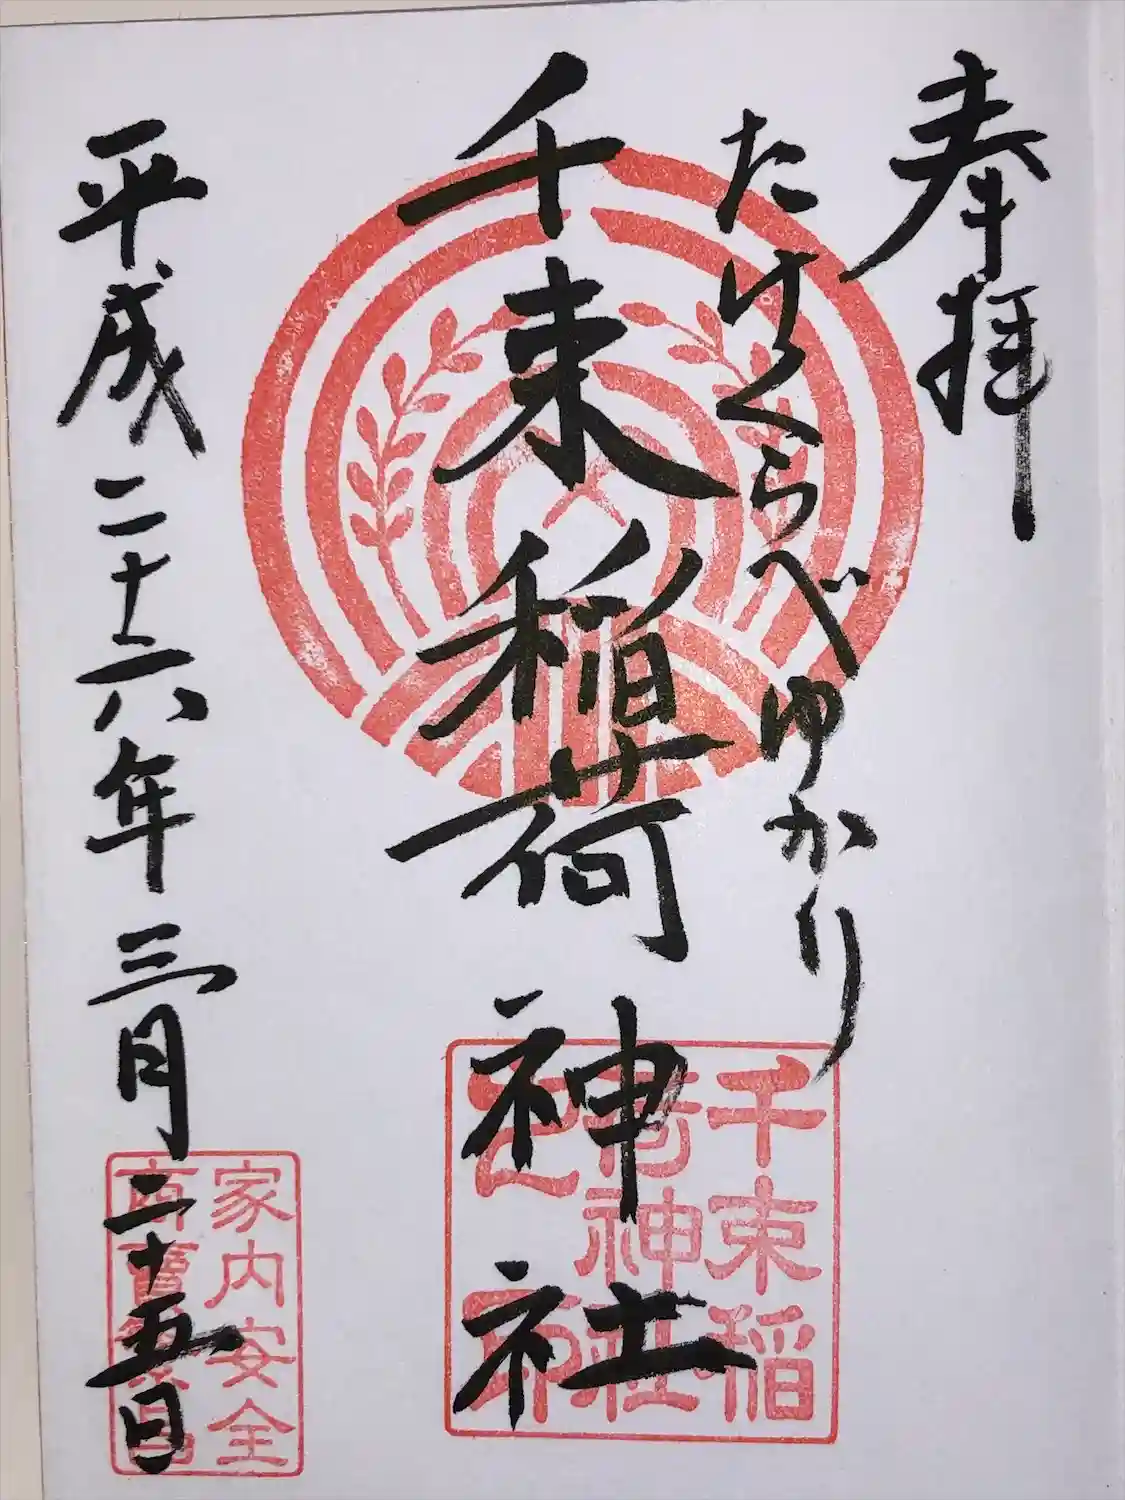 奉拝
たけくらべゆかり
千束稲荷神社
平成二十六年三月二十五日
千束稲
荷神社
之印
家内安全
商賣繁昌